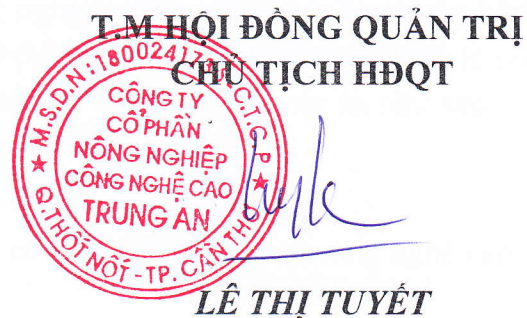 T.M HỘI ĐỒNG QUẢN TRỊ
CHỦ TỊCH HĐQT
CÔNG TY
CỔ PHẦN
NÔNG NGHIỆP
CÔNG NGHỆ CAO
TRUNG AN
Q.THỐT NỐT - TP. CẦN THƠ
LÊ THỊ TUYẾT